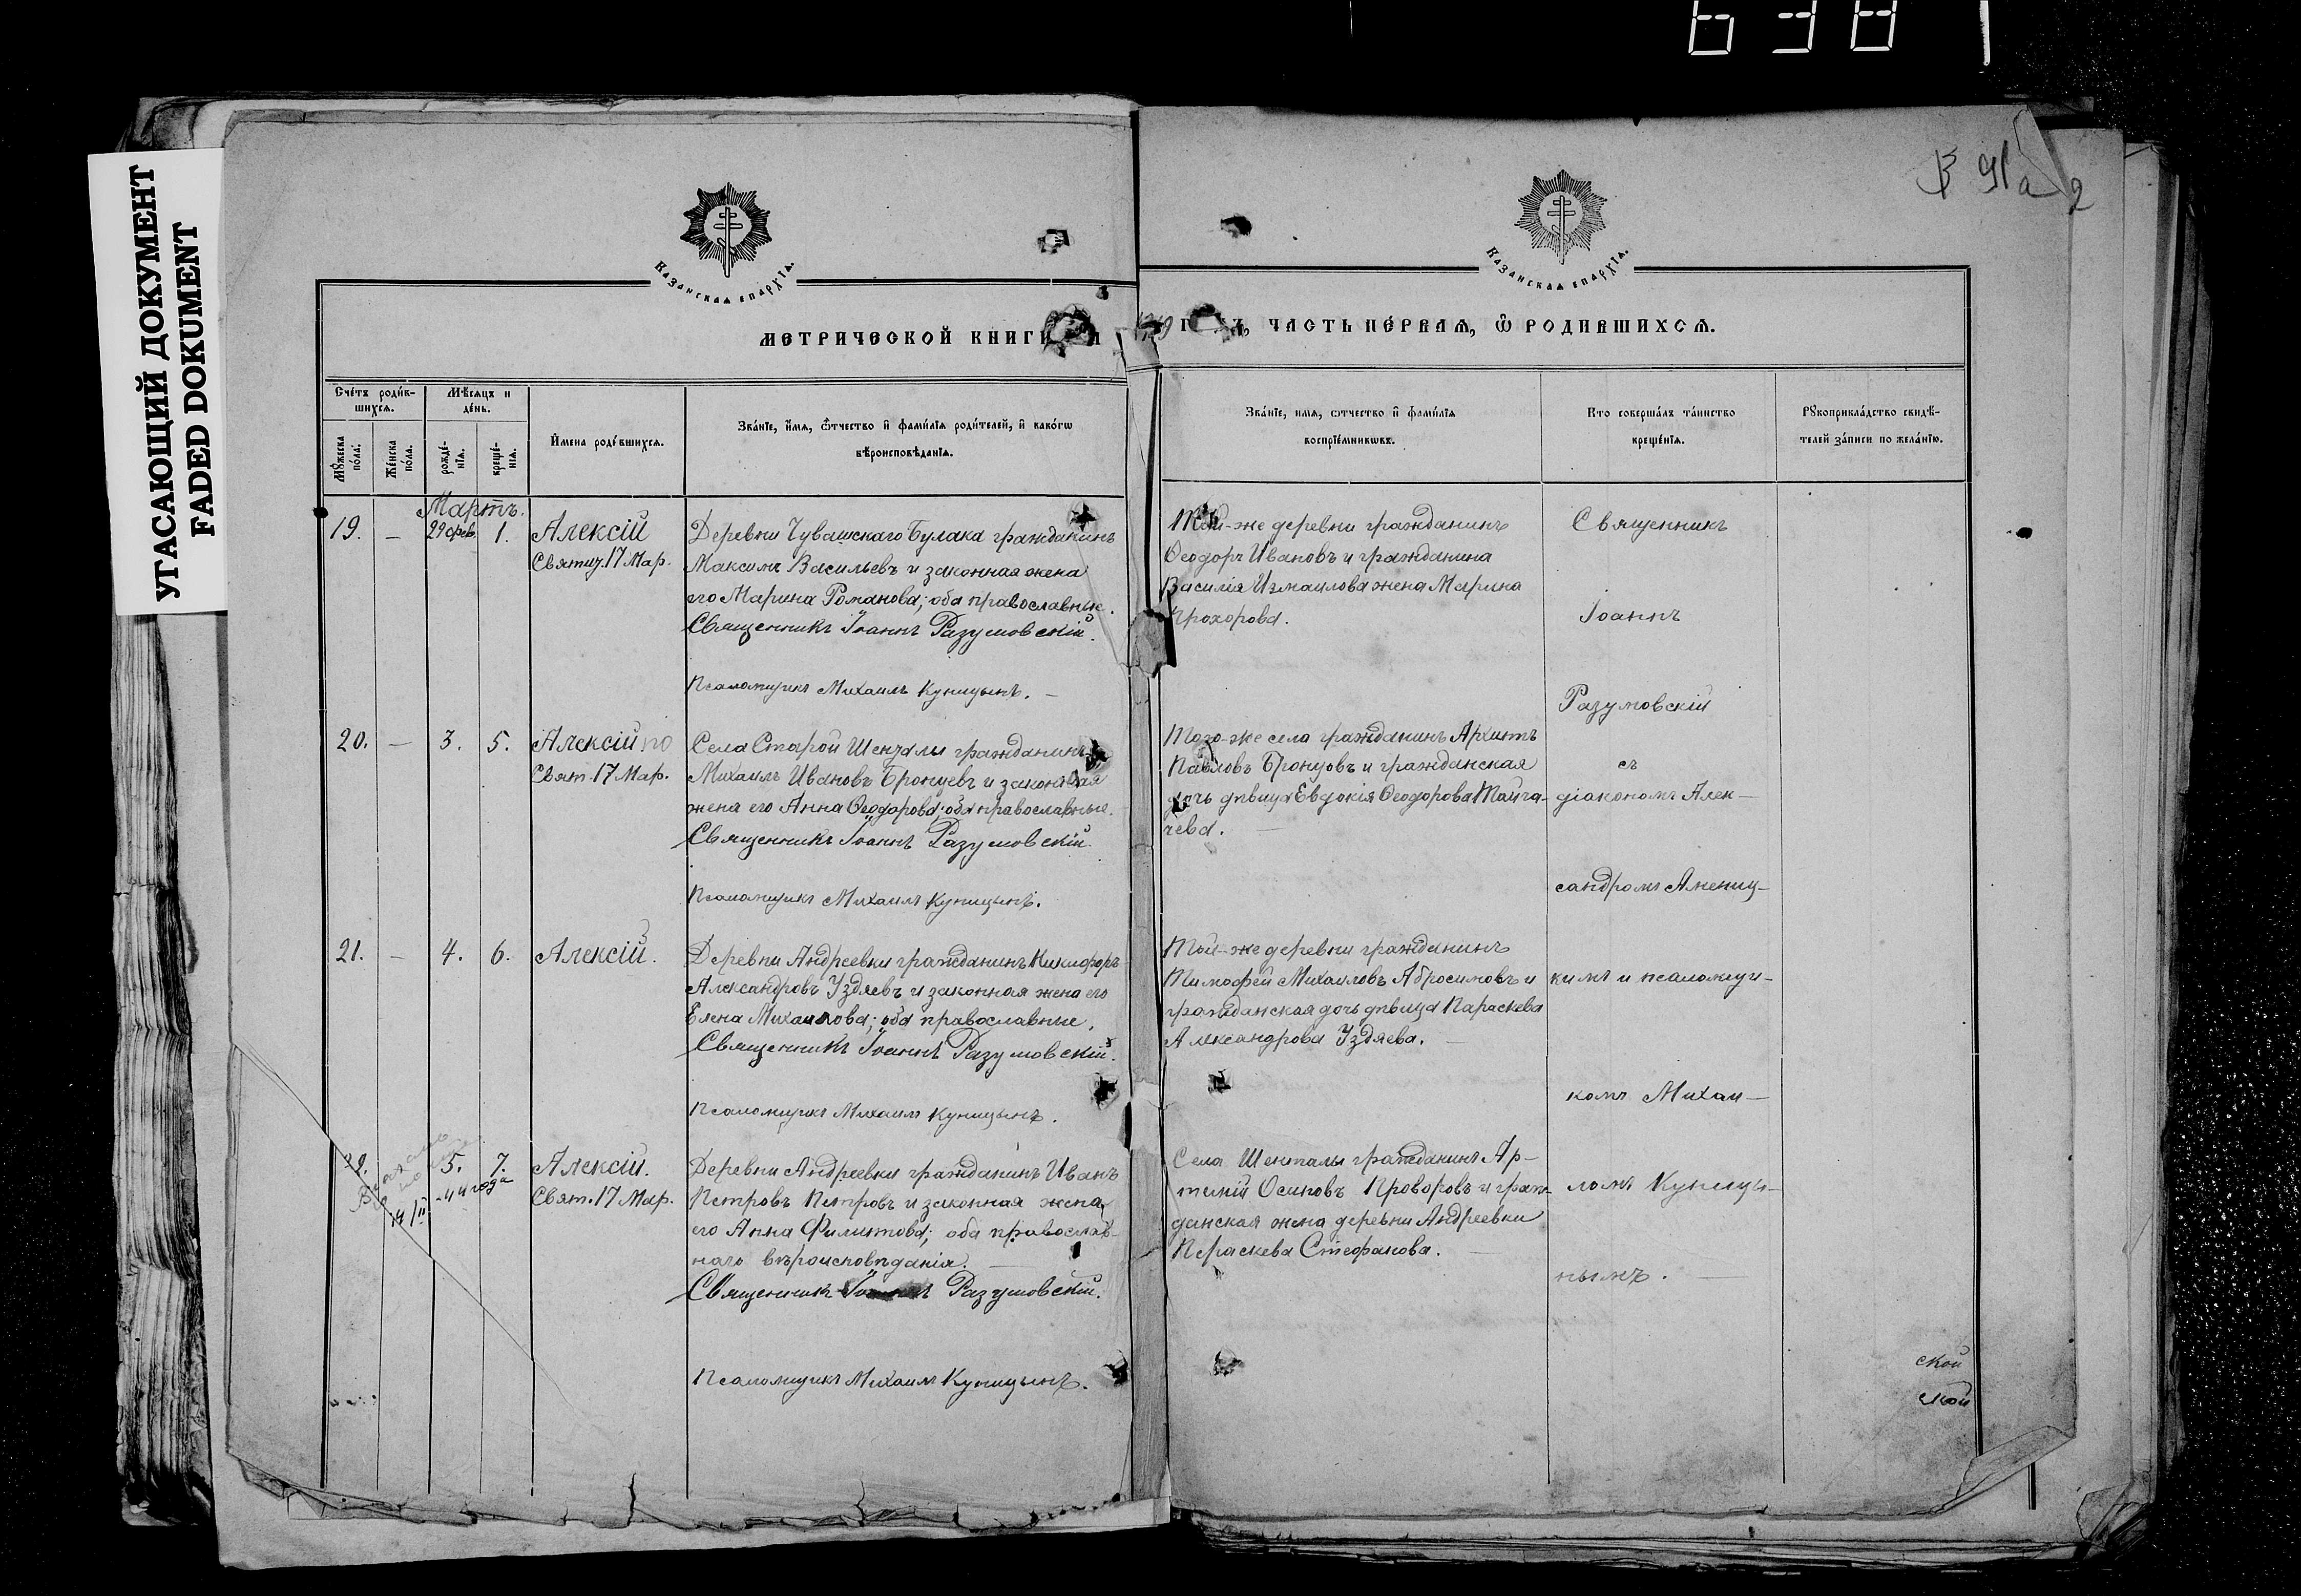 6381
УГАСАЮЩИЙ ДОКУМЕНТ
FADED DOKUMENT
91а
2
Казанская епархїѧ.
Казанская епархїѧ.
МЕТРИЧЕСКОЙ КНИГИ
ЧАСТЬ ПЕ́РВАѦ, Ѽ РОДИВШИХСѦ.
Сче́тъ роди́в-
шихсѧ.
Мѣ́сѧцъ и
де́нь.
Мꙋ́жеска
по́ла.
Же́нска
по́ла.
рожде́-
нїѧ.
креще́-
нїѧ.
И҆мена роди́вшихсѧ.
Зва́нїе, и҆́мѧ, ѻ҆́тчество и҆ фами́лїѧ роди́телей, и҆ како́гѡ
вѣроисповѣ́данїѧ.
Зва́нїе, имѧ, ѻтчество и҆ фами́лїѧ
воспрїе́мникѡвъ.
Кто соверша́лъ та́инство
креще́нїѧ.
Рꙋкоприкла́дство свидѣ́-
телей за́писи по жела́нїю.
Мартъ.
19. — 29 фев. 1. Алексій
Святц. 17 Мар.
Деревни Чувашскаго Булака гражданинъ
Максимъ Васильевъ и законная жена
его Марина Романова; оба православные.
Священникъ Іоаннъ Разумовскій.
Псаломщикъ Михаилъ Куницынъ. —
Той-же деревни гражданинъ
Ѳеодоръ Ивановъ и гражданина
Василія Измаилова жена Марина
Прохорова.
Священникъ
Іоаннъ
Разумовскій
20. — 3. 5. Алексій по
Свят. 17 Мар.
Села Старой Шенталы гражданинъ
Михаилъ Ивановъ Бронцевъ и законная
жена его Анна Ѳеодорова; оба православные.
Священникъ Іоаннъ Разумовскій.
Псаломщикъ Михаилъ Куницынъ.
Того-же села гражданинъ
Павловъ Бронцовъ и гражданская
дочь дѣвица Евдокія Ѳеодорова Тайга-
чева. —
съ
діакономъ Алек-
сандромъ
21. — 4. 6. Алексій.
Деревни Андреевки гражданинъ Никифоръ
Александровъ Уздяевъ и законная жена его
Елена Михаилова; оба православные.
Священникъ Іоаннъ Разумовскій.
Псаломщикъ Михаилъ Куницынъ.
Той-же деревни гражданинъ
Тимофей Михаиловъ Абросимовъ и
гражданская дочь дѣвица Параскева
Александрова Уздяева. —
кимъ и псаломщи-
комъ Михаи-
22. 5. 7. Алексій.
Свят. 17 Мар.
14/II -44 года
Деревни Андреевки гражданинъ Иванъ
Петровъ Петровъ и законная жена
его Анна Филиппова; оба православ-
наго вѣроисповѣданія. —
Священникъ Іоаннъ Разумовскій.
Псаломщикъ Михаилъ Куницынъ.
Села Шенталы гражданинъ Ар-
темій Осиповъ Проворовъ и граж-
данская жена деревни Андреевки
Параскева Стефанова.
ломъ Куницы-
нымъ. —
ской
ской